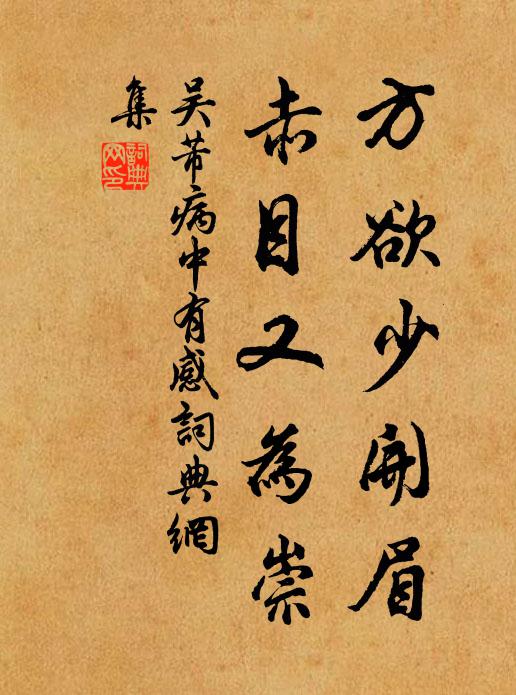 方欲少開眉
赤目又為祟
吴芾病中有感詞典網
集
詞典
网印